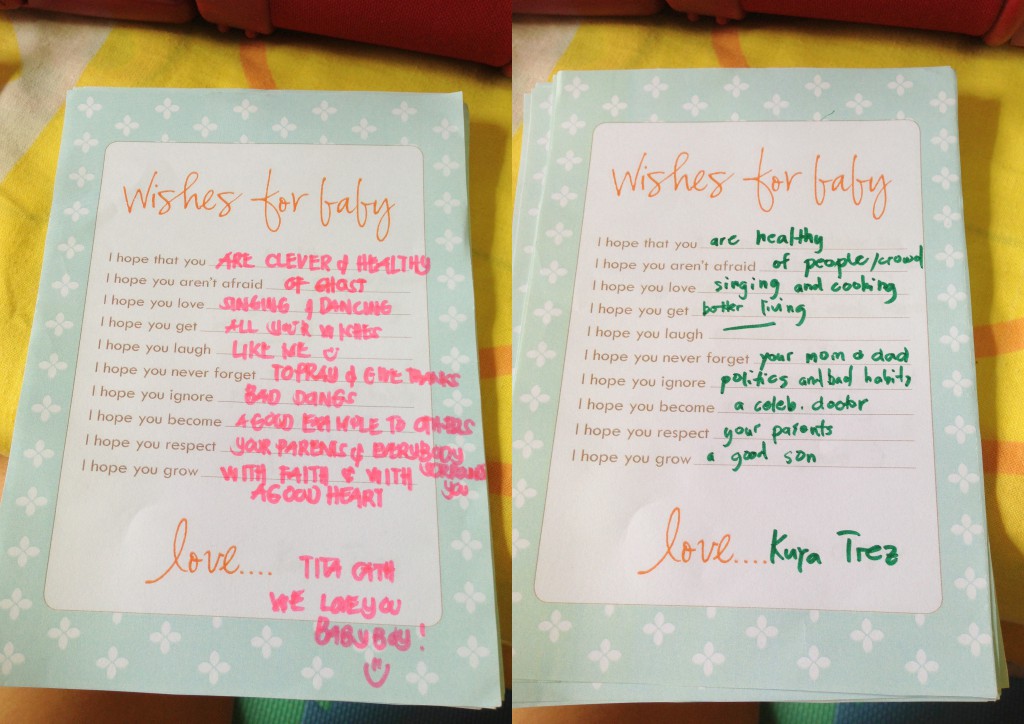 wishes for baby
I hope that you ARE CLEVER & HEALTHY
I hope you aren't afraid OF GHOST
I hope you love SINGING & DANCING
I hope you get ALL YOUR WISHES
I hope you laugh LIKE ME
I hope you never forget TO PRAY & GIVE THANKS
I hope you ignore BAD DANGS
I hope you become A GOOD EXAMPLE TO OTHERS
I hope you respect YOUR PARENTS & EVERYBODY
SURROUND
YOU
I hope you grow WITH FAITH & WITH
A GOOD HEART
love.... TITA CATH
WE LOVE YOU
BABY BOY!
wishes for baby
I hope that you are healthy
I hope you aren't afraid of people/crowd
I hope you love singing and cooking
I hope you get better living
I hope you laugh
I hope you never forget your mom & dad
I hope you ignore politics and bad habits
I hope you become a celeb. doctor
I hope you respect your parents
I hope you grow a good son
love.... Kuya Trez